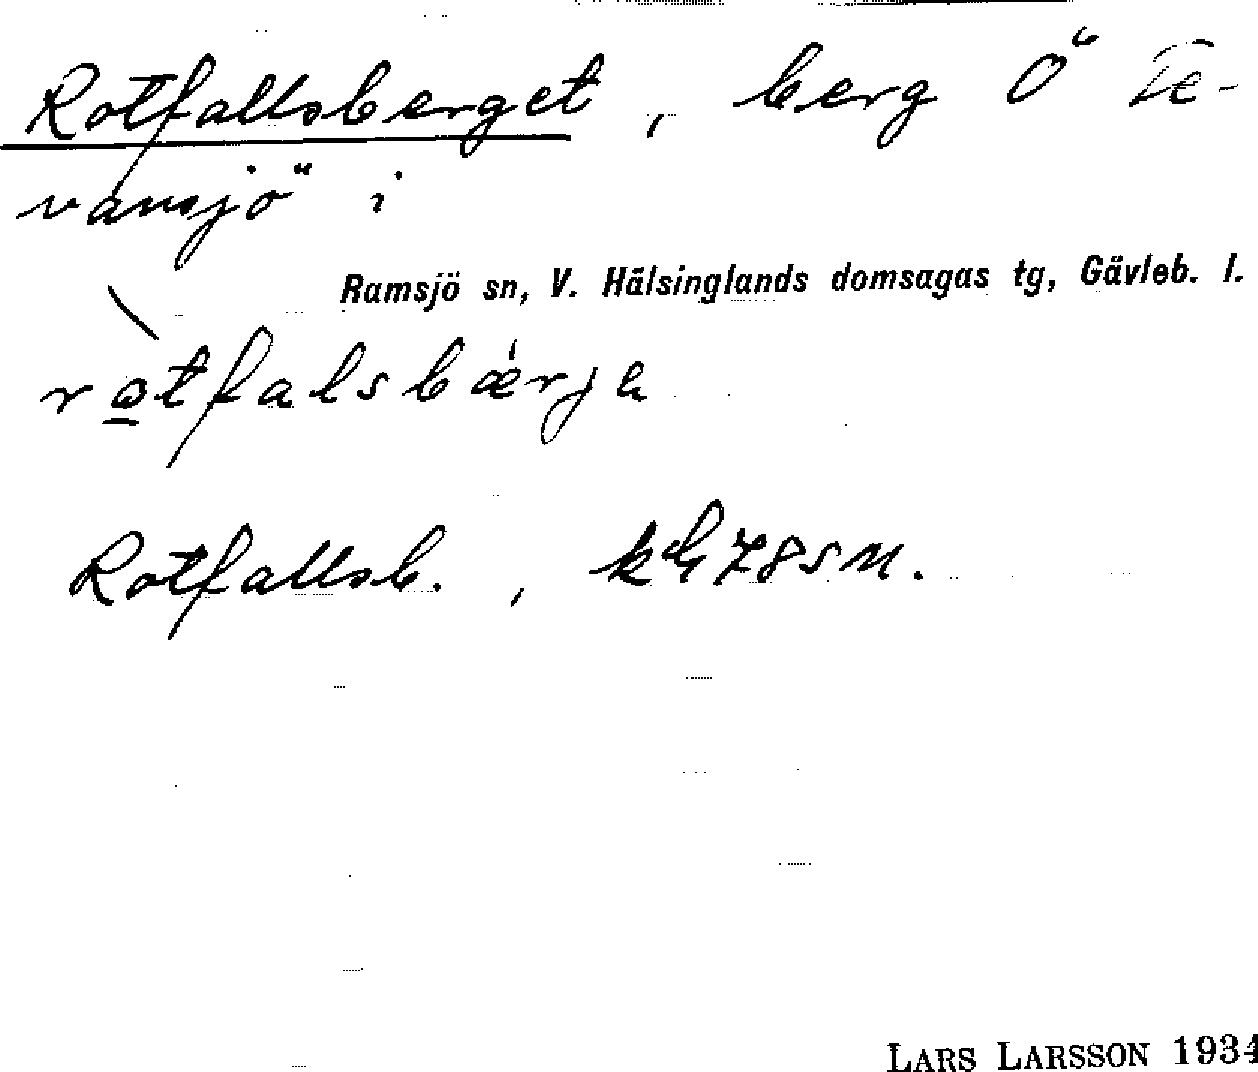 Rotfallsberget, berg Ö Te-
vansjö i
Ramsjö sn, V. Hälsinglands domsagas tg, Gävleb. l.
ròtfalsbǽrjα
Rotfallsb., kbl 78 sn.
LARS LARSSON 1934